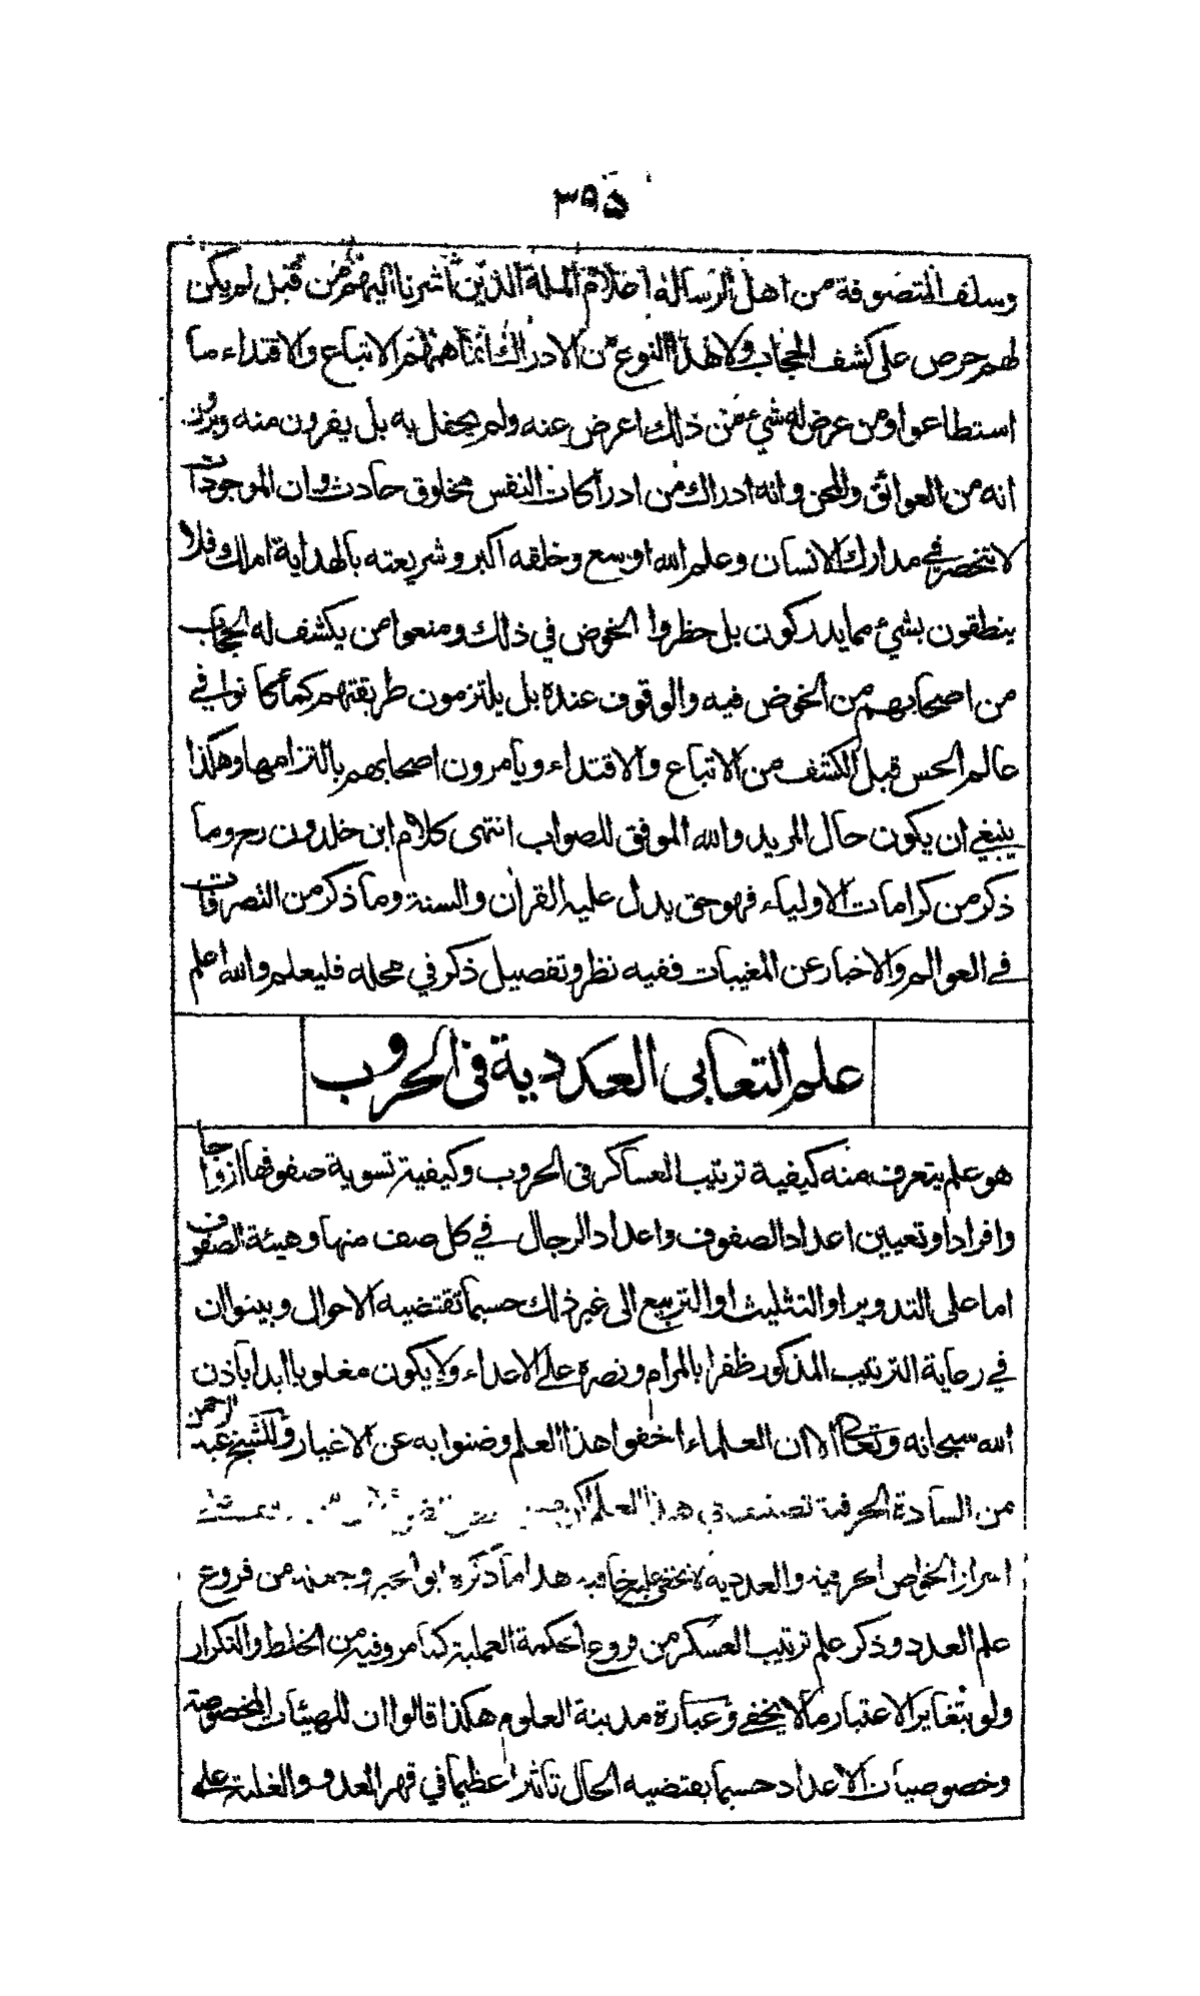 ٣٩٥
وسلف المتصوفة من اهل الرسالة اعلام الملة الذين اشرنا اليهم من قبل لم يكن
لهم حرص على كشف الحجاب ولا هذا النوع من الادراك انما همهم الاتباع والاقتداء ما
استطاعوا ومن عرض له شيء من ذلك اعرض عنه ولم يحفل به بل يفرون منه ويرون
انه من العوائق والمحن وانه ادراك من ادراكات النفس مخلوق حادث وان الموجودات
لا تنحصر في مدارك الانسان وعلم الله اوسع وخلقه اكبر وشريعته بالهداية املك فلا
ينطقون بشيء مما يدركون بل حظروا الخوض في ذلك ومنعوا من يكشف له الحجاب
من اصحابهم من الخوض فيه والوقوف عنده بل يلتزمون طريقتهم كما كانوا في
عالم الحس قبل الكشف من الاتباع والاقتداء ويامرون اصحابهم بالتزامها وهكذا
ينبغي ان يكون حال المريد والله الموفق للصواب انتهى كلام ابن خلدون رح وما
ذكر من كرامات الاولياء فهو حق يدل عليه القران والسنة وما ذكر من التصرفات
في العوالم والاخبار عن المغيبات ففيه نظر وتفصيل ذكر في محله فليعلم والله اعلم
علم التعابى العددية فى الحروب
هو علم يتعرف منه كيفية ترتيب العساكر فى الحروب وكيفية تسوية صفوفها ازواجا
وافرادا وتعيين اعداد الصفوف واعداد الرجال في كل صف منها وهيئة الصفوف
اما على التدوير او التثليث او التربيع الى غير ذلك حسبما تقتضيه الاحوال وبينوا ان
في رعاية الترتيب المذكور ظفرا بالمرام ونصرة على الاعداء ولا يكون مغلوبا ابدا باذن
الله سبحانه وتعالى الا ان العلماء اخفوا هذا العلم وضنوا به عن الاغيار وللشيخ عبد الرحمن
من السادة الحرفية تصنيف في هذا العلم
اسرار الخواص الحرفية والعددية لا تخفى عليه خافية هذا ما ذكره ابو الخير وجعله من فروع
علم العدد وذكر علم ترتيب العسكر من فروع الحكمة العملية كما مر وفيه من الخلط والتكرار
ولو بتغاير الاعتبار ما لا يخفى وعبارة مدينة العلوم هكذا قالوا ان للهيئات المخصوصة
وخصوصيات الاعداد حسبما يقتضيه الحال تاثيرا عظيما في قهر العدو والغلبة على